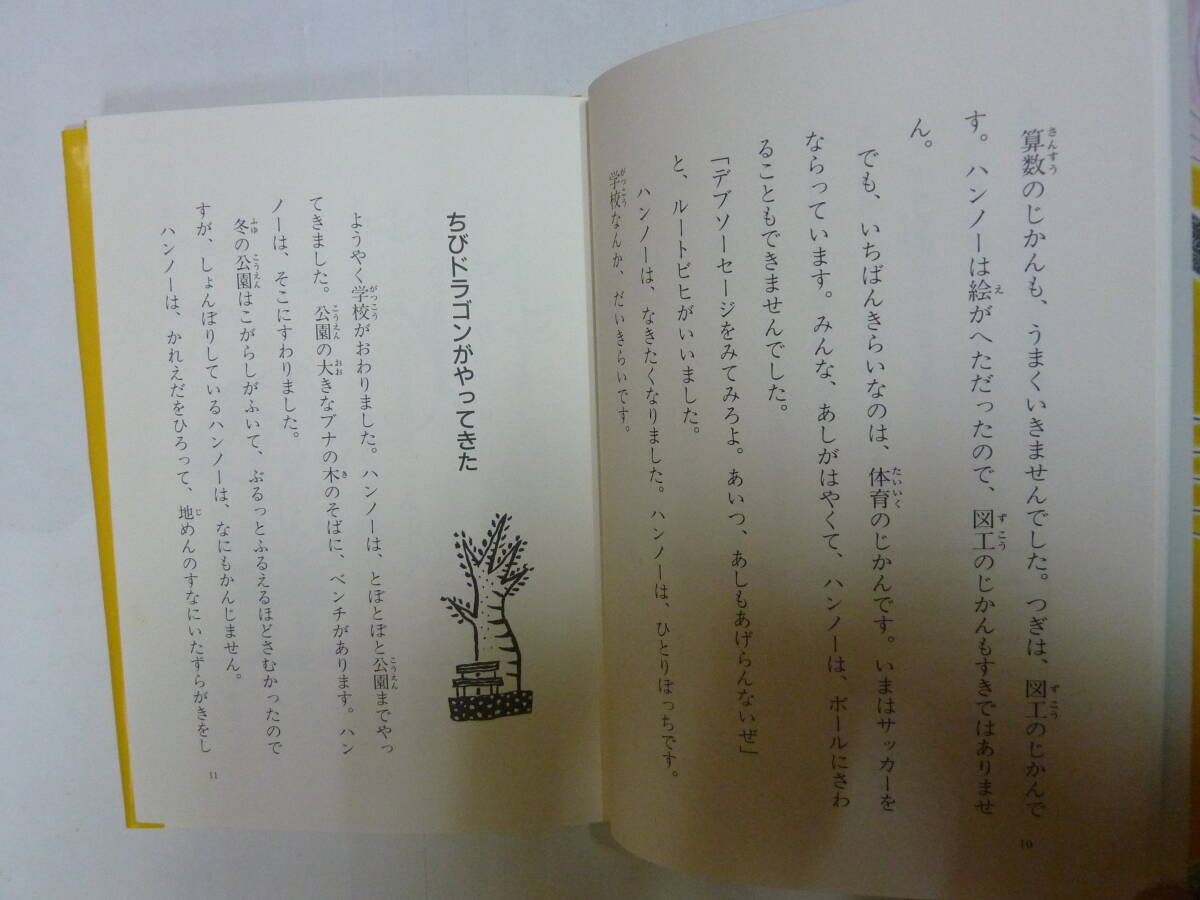 算数のじかんも、うまくいきませんでした。つぎは、図工のじかんで
す。ハンノーは絵がへただったので、図工のじかんもすきではありませ
ん。
でも、いちばんきらいなのは、体育のじかんです。いまはサッカーを
ならっています。みんな、あしがはやくて、ハンノーは、ボールにさわ
ることもできませんでした。
「デブソーセージをみてみろよ。あいつ、あしもあげらんないぜ」
と、ルートビヒがいいました。
ハンノーは、なきたくなりました。ハンノーは、ひとりぼっちです。
学校なんか、だいきらいです。
10
ちびドラゴンがやってきた
ようやく学校がおわりました。ハンノーは、とぼとぼと公園までやっ
てきました。公園の大きなブナの木のそばに、ベンチがあります。ハン
ノーは、そこにすわりました。
冬の公園はこがらしがふいて、ぶるっとふるえるほどさむかったので
すが、しょんぼりしているハンノーは、なにもかんじません。
ハンノーは、かれえだをひろって、地めんのすなにいたずらがきをし
11